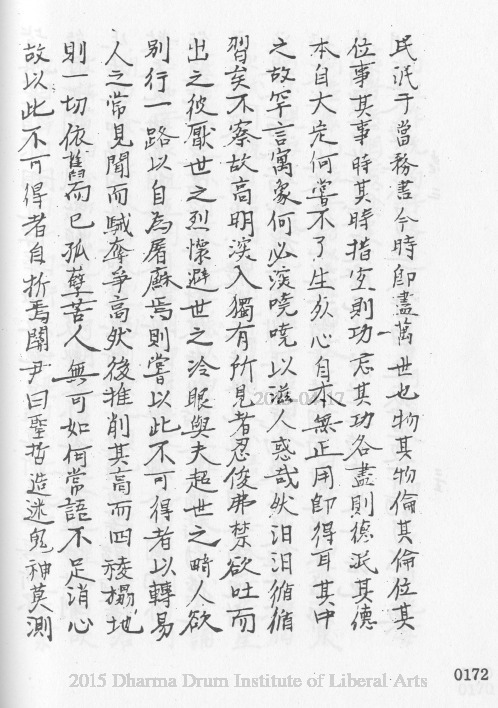 民泯于當務書今時即盡萬世也物其物倫其倫位其
位事其事時其時措宜則功忘其功各盡則德泯其德
本自大定何嘗不了生死心自本無正用即得耳其中
之故罕言寓象何必深嘵嘵以滋人惑哉然汨汨循循
習矣不察故高明深入獨有所見者忍俊弗禁欲吐而
出之彼厭世之烈懷避世之冷眼與夫超世之畸人欲
別行一路以自為屠酥焉則嘗以此不可得者以轉易
人之常見聞而馘奪爭高然後推削其高而四稜榻地
則一切依舊而已孤孽苦人無可如何常語不足消心
故以此不可得者自折焉關尹曰聖哲造迷鬼神莫測
0172
2015 Dharma Drum Institute of Liberal Arts